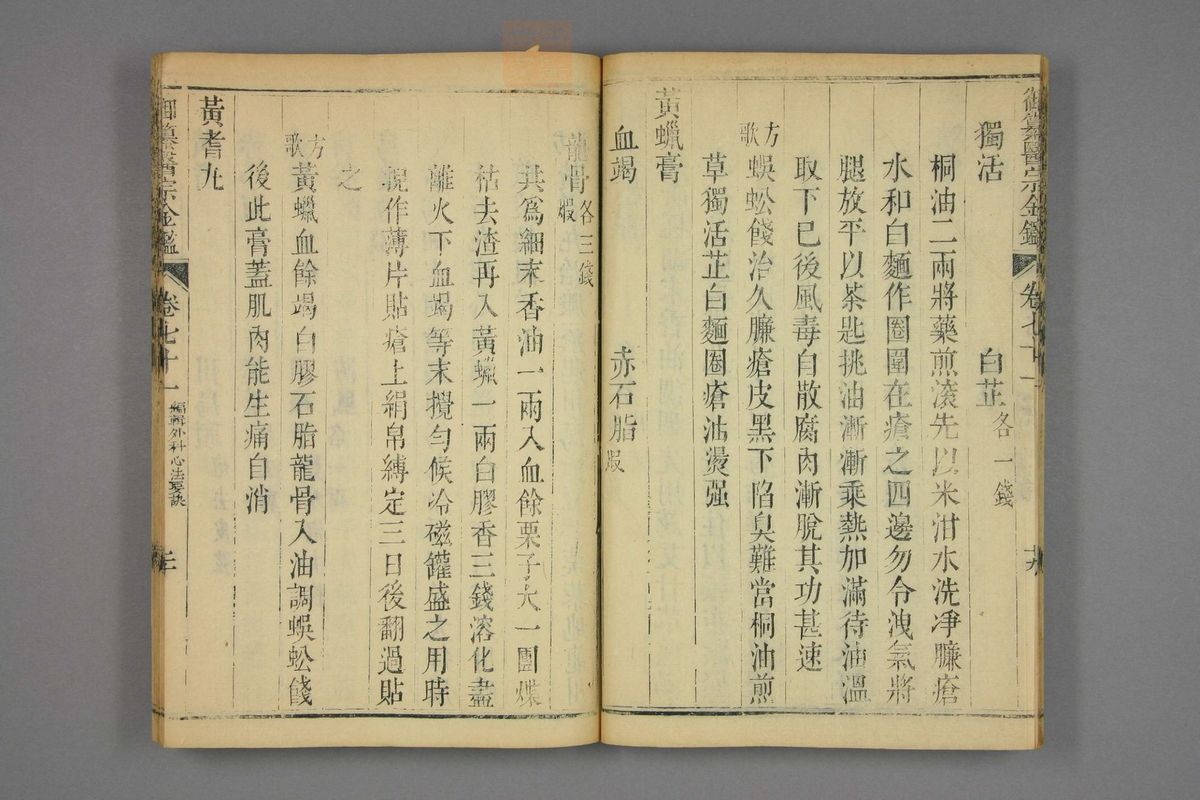 御纂醫宗金鑑 卷七十一
獨活 白芷各一錢
桐油二兩將藥煎滚先以米泔水洗凈臁瘡
水和白麵作圈圍在瘡之四邊勿令洩氣將
腿放平以茶匙挑油漸漸乘熱加滿待油溫
取下已後風毒自散腐肉漸脫其功甚速
方歌 蜈蚣餞治久臁瘡皮黑下陷臭難當桐油煎
草獨活芷白麵圈瘡油燙强
黃蠟膏
血竭 赤石脂煆
龍骨煆各三錢
共爲細末香油一兩入血餘栗子大一團煠
枯去渣再入黃蠟一兩白膠香三錢溶化盡
離火下血竭等末攪勻候冷磁罐盛之用時
捏作薄片貼瘡上絹帛縛定三日後翻過貼
之
方歌 黃蠟血餘竭白膠石脂龍骨入油調蜈蚣餞
後此膏蓋肌肉能生痛自消
黃耆丸
御纂醫宗金鑑 卷七十一 編輯外科心法要訣